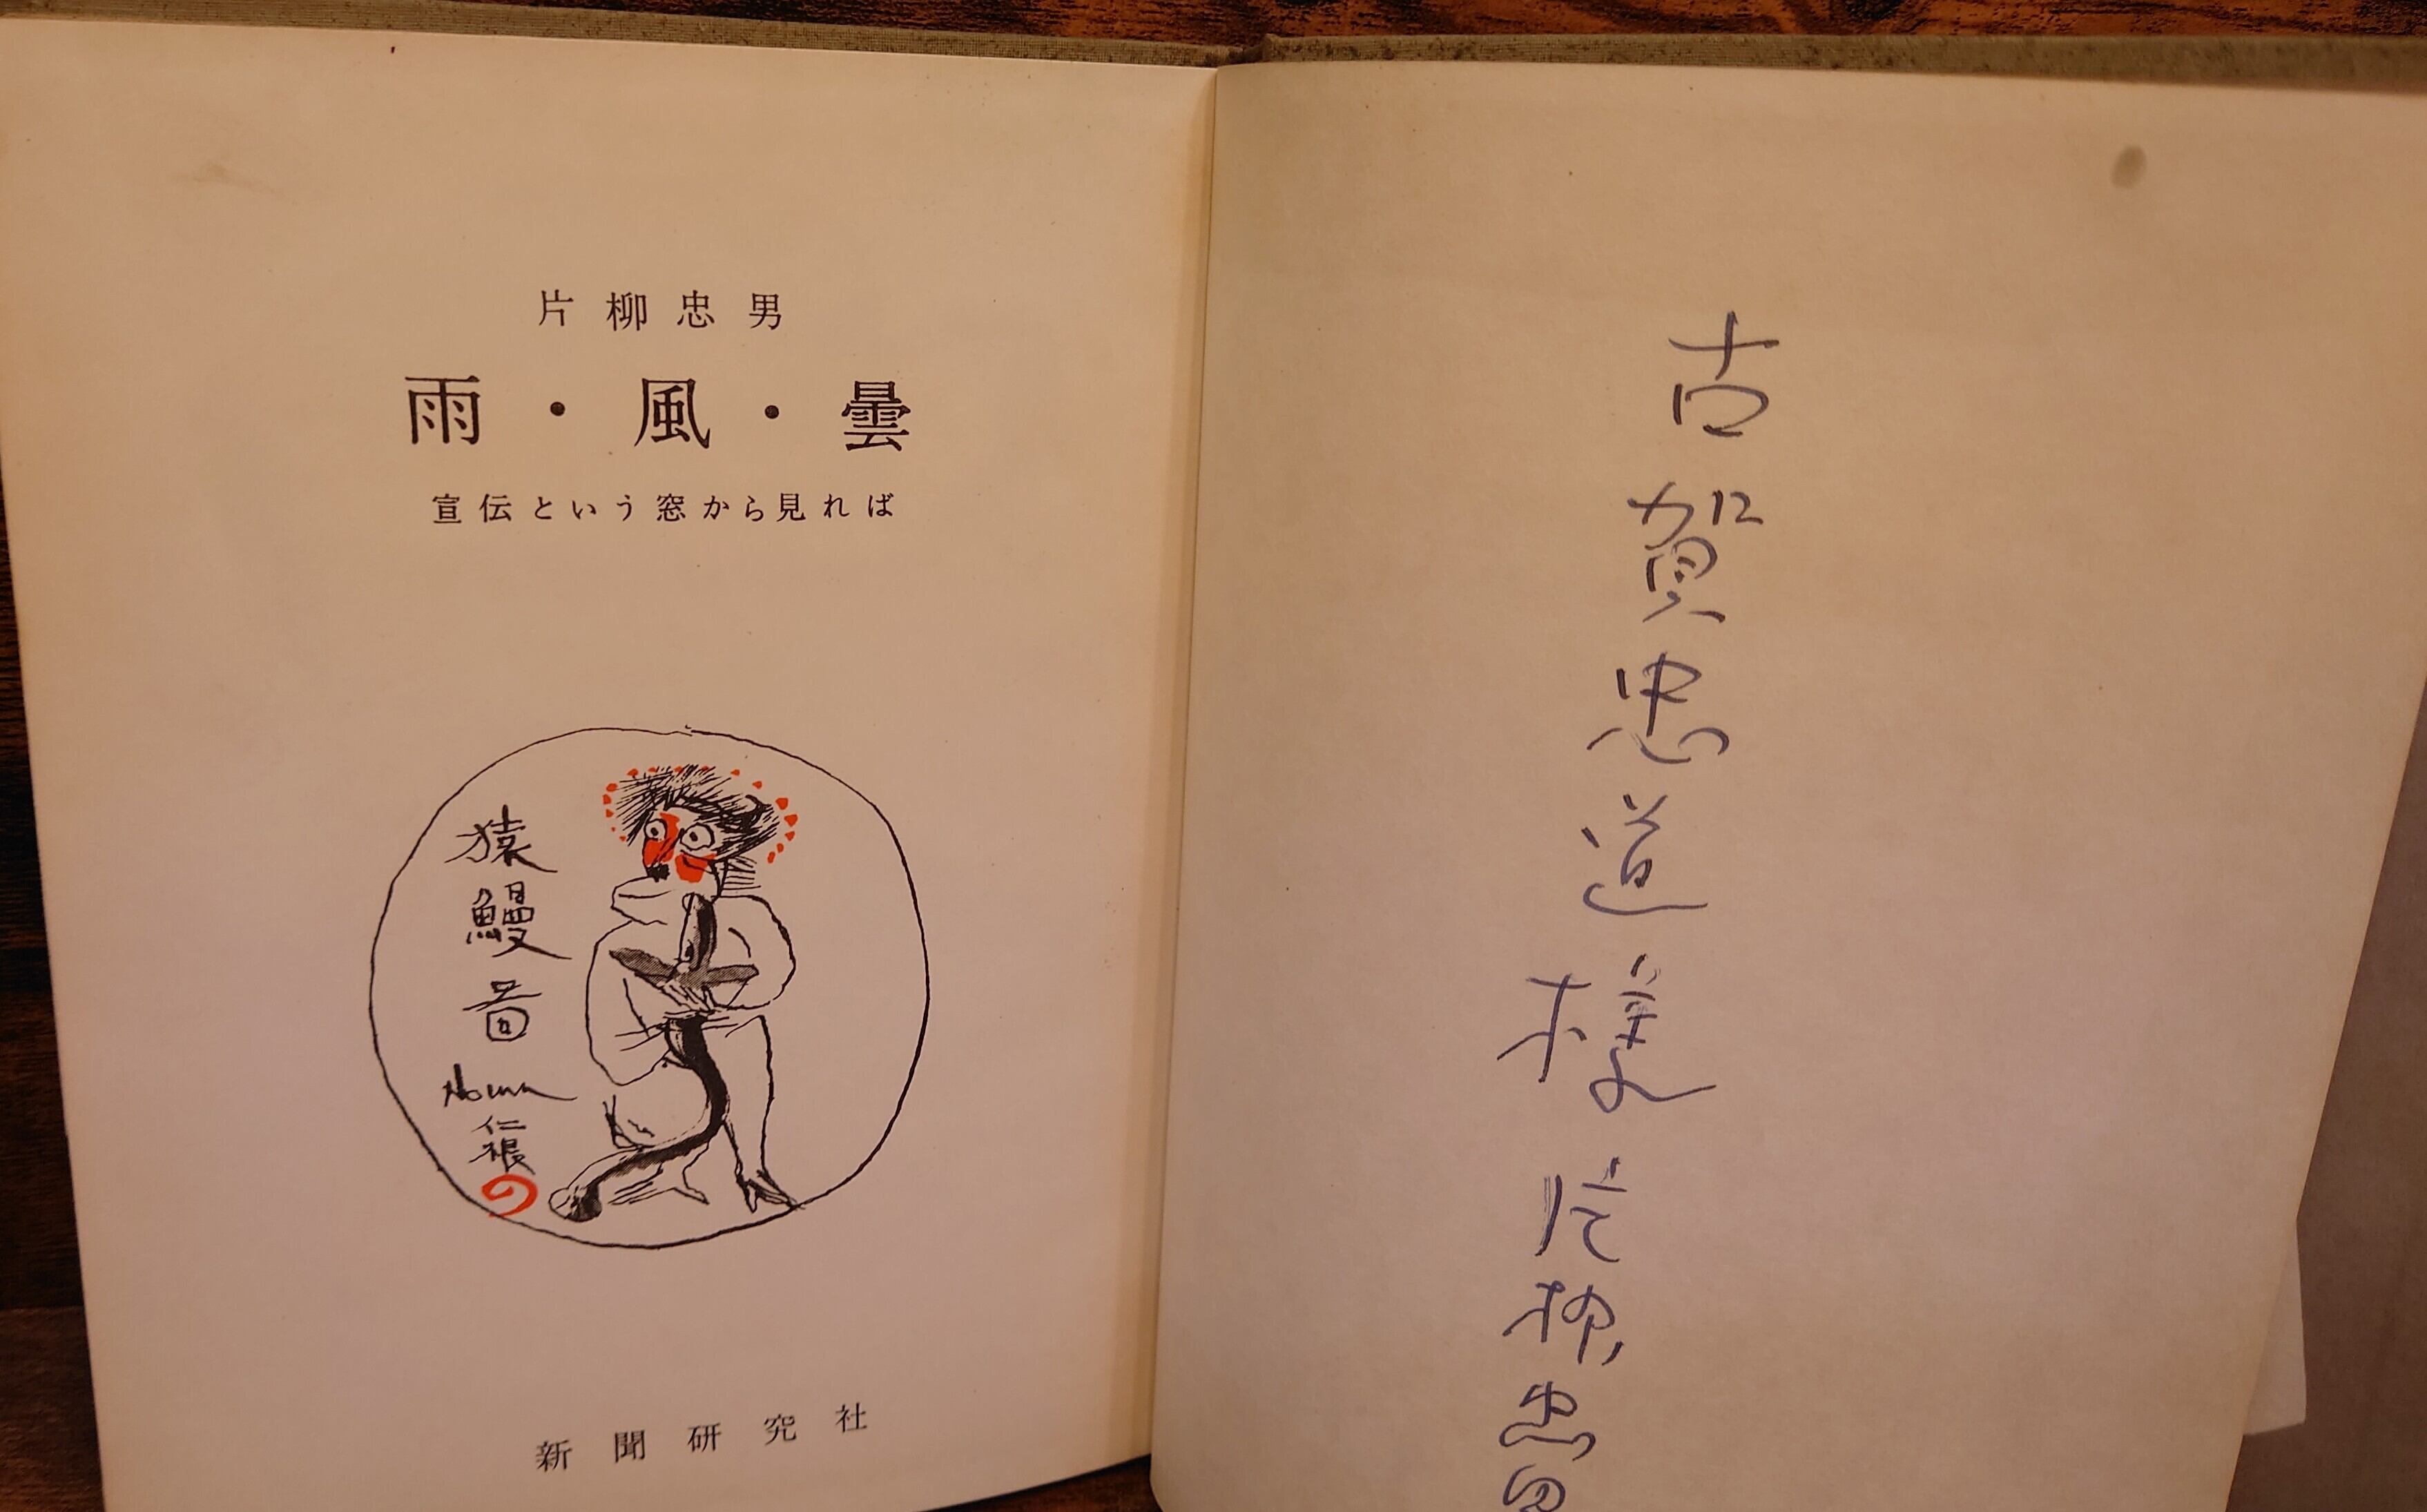 片柳忠男
雨・風・曇
宣伝という窓から見れば
猿鰻図
仁根
の
新聞研究社
古賀忠道様
片柳忠男